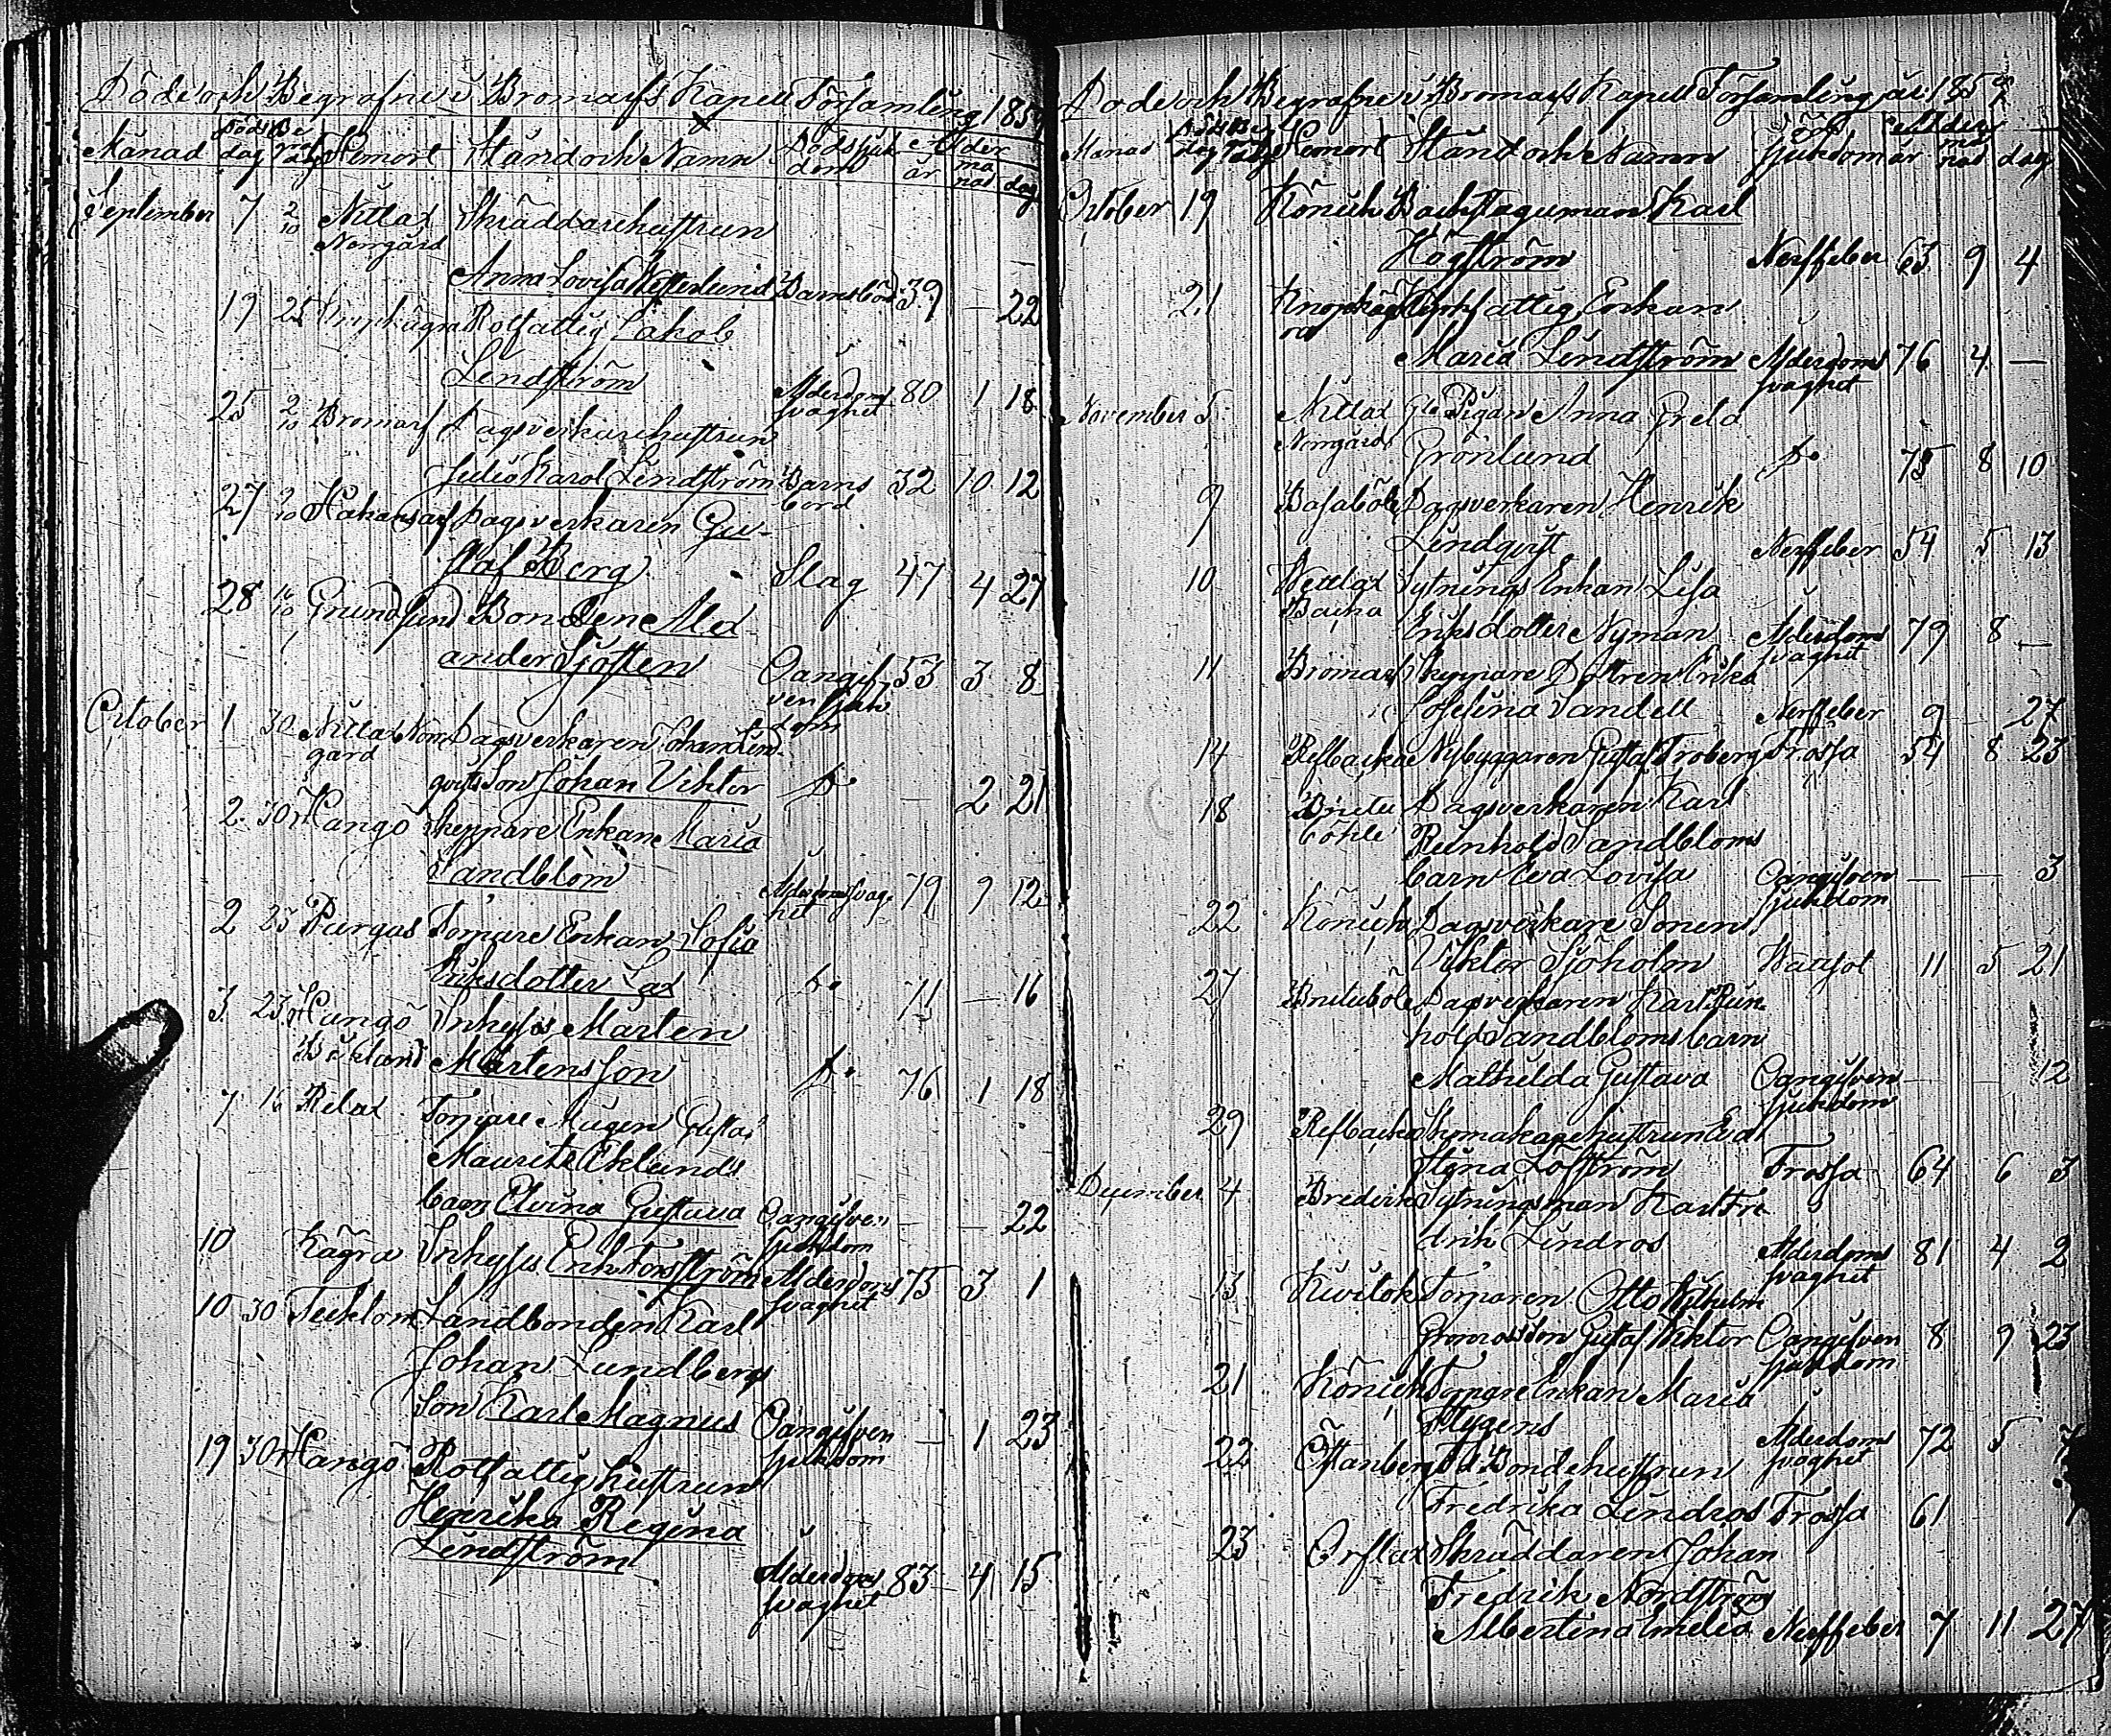 Döde och Begrafne i Bromarfs Kapell Församling 1859
Månad Döds dag Be graf dag Hemort Stånd och Namn Dödssjuk dom Ålder år må nad dag
September 7 2/10 Nitlax Skräddarehustrun
Norrgård
Anna Lovisa Westerlund Barnsbörd 39 — 22
19 25 Rotfattig Jakob
Lindström Ålderdoms 80 1 18
svaghet
25 2/10 Bromarf Dagsverkarehustrun
Karol Lindström Barns 32 10 12
börd
27 2/10 Håkansarf Dagsverkaren Gu-
staf Berg Slag 47 4 27
28 16/10 Grundsund Bonden Alex
ander Sjösten Oangif 53 3 8
ven sjuk
October 1 30 Nitlax Norr Dagsverkaren Johan Lind dom
gård
qvists Son Johan Viktor Do — 2 21
2 30 Hangö Skeppare Enkan Maria
Sandblom Ålderdomssvag 79 9 12
het
2 23 Purgas Torpare Enkan Sofia
Eriksdotter Lax Do 71 — 16
3 23 Hangö Inhyses Mårten
Mårtensson Do 76 1 18
7 16 Rilax Torpare Mågen Gustaf
Maurits Eklunds
barn Elvina Gustava Oangifven — — 22
sjukdom
10 Kägra Inhyses Erik Forsström Ålderdoms 75 3 1
svaghet
10 30 Landbonden Karl
Johan Lundbergs
Son Karl Magnus Oangifven — 1 23
sjukdom
19 30 Hangö Rotfattig hustrun
Henrika Regina
Lindström Ålderdoms 83 4 15
svaghet
Döde och Begrafne i Bromarfs Kapell Församling år 1859
Månad Hemort Stånd och Namn sjukdom Ålder år må nad dag
October 19 Könick Backstaguman Karl
Högström Nerffeber 63 9 4
21 Knopkäg Rotfattig Enkan
ra
Maria Lindström Ålderdoms 76 4 —
svaghet
November 5 Nitlax Gla Pigan Anna Greta
Norrgård Grönlund Do 75 8 10
9 Basaböle Dagsverkaren Henrik
Lindqvist Nerffeber 54 5 13
10 Wettlax Sytnings Enkan Lisa
Backa
Eriksdotter Nyman Ålderdoms 79 8 —
svaghet
11 Bromarf Skeppare Dottren Erika
Josefina Sandell Nerffeber 9 — 27
14 Refbacka Nybyggaren Gustaf Froberg Frossa 54 8 23
18 Dagsverkaren Karl
böhle Reinhold Sandbloms
barn Eva Lovisa Oangifven — — 3
sjukdom
22 Könick Dagsverkare Sonen
Viktor Sjöholm Wattsot 11 5 21
27 Dagsverkaren Karl Rein
hold Sandbloms barn
Mathilda Gustava Oangifven — — 12
sjukdom
29 Refbacka Skomakarehustrun Eva
Stina Löfström Frossa 64 6 3
December 4 Bredvik Sytningsman Karl Fre
drik Lindros Ålderdoms 81 4 2
svaghet
13 Kivitok Torparen Otto Wilhelm
Grönroos son Gustaf Viktor Oangifven 8 9 23
sjukdom
21 Könick Torpare Enkan Maria
Flygens Ålderdoms 72 5 7
svaghet
22 Östanberg Bondehustrun
Fredrika Lindros Frossa 61
23 Orslax Skräddaren Johan
Fredrik Nordström
Albertina Emelia Nerffeber 7 11 27